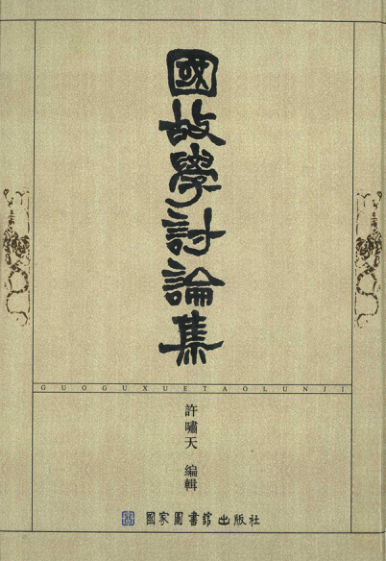 國故學討論集
GUOGUXUETAOLUNJI
許嘯天 編輯
國家圖書館出版社